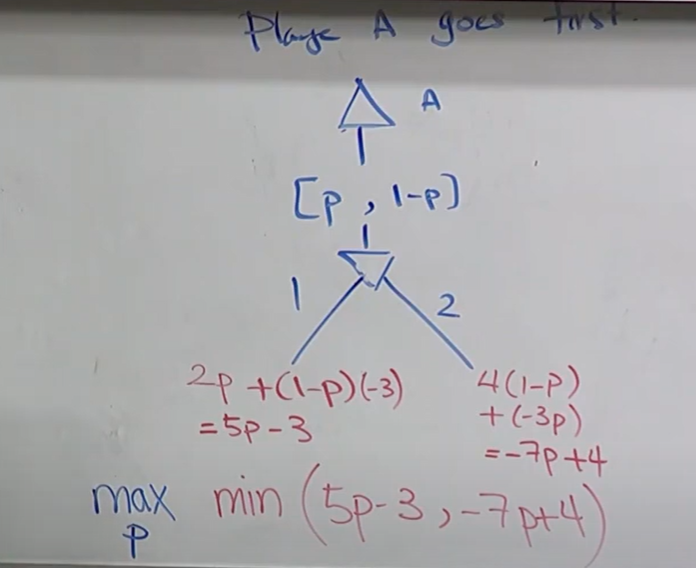 Playe A goes first.
A
[p, 1-p]
1
2
2p + (1-p)(-3)
= 5p - 3
4(1-p)
+ (-3p)
= -7p + 4
max min (5p-3, -7p+4)
p